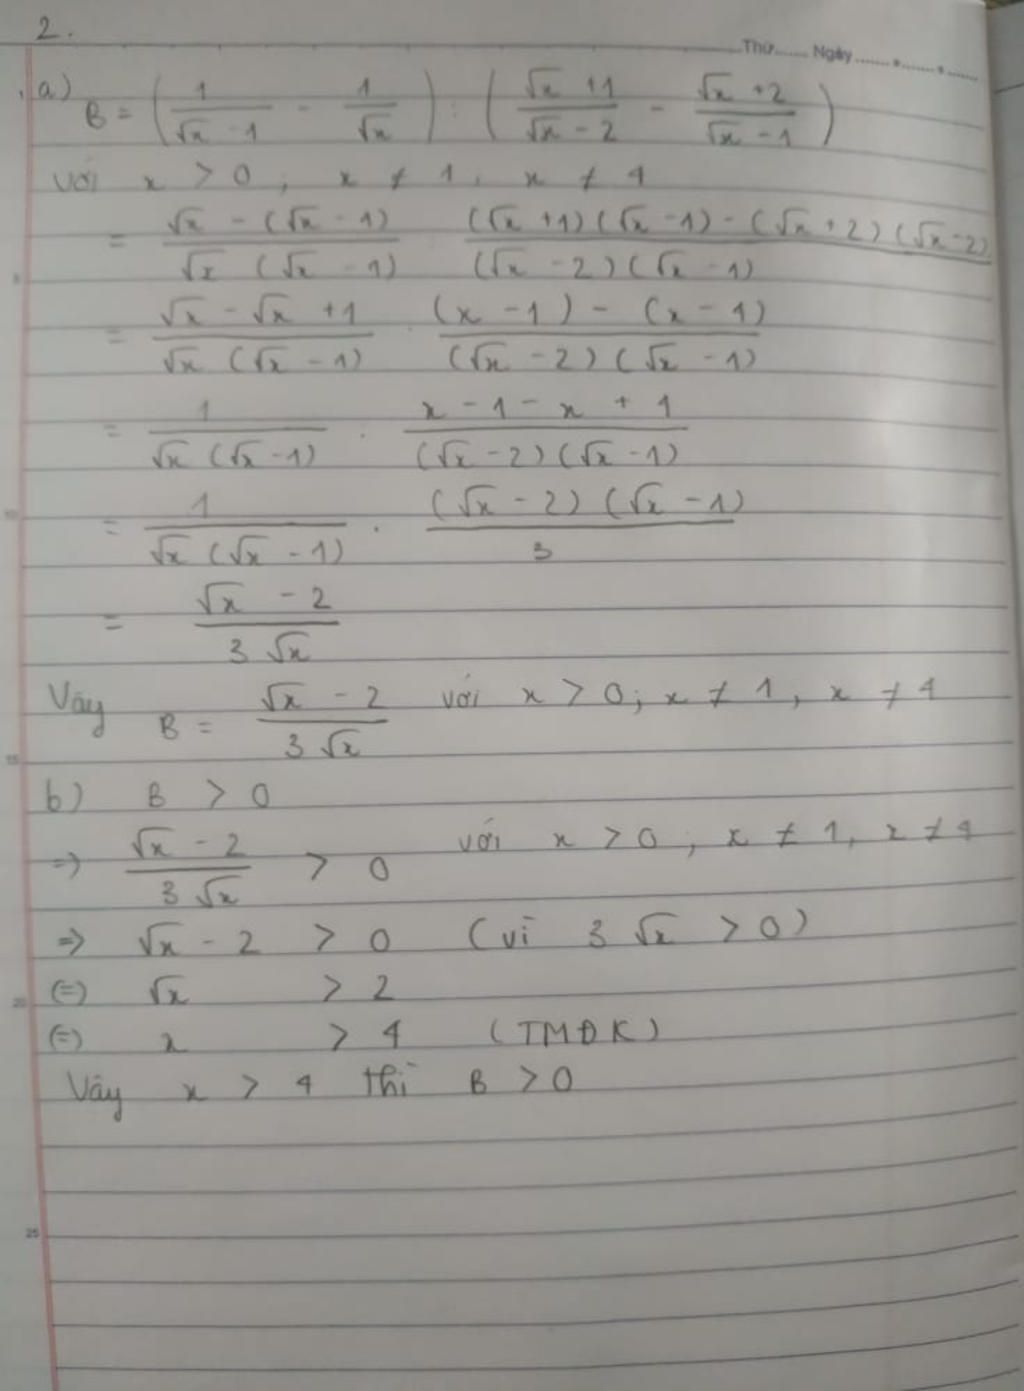 2.
Thứ...... Ngày.................
a) B = (1/(√x - 1) - 1/√x) : ((√x + 1)/(√x - 2) - (√x + 2)/(√x - 1))
với x > 0; x ≠ 1, x ≠ 4
= (√x - (√x - 1))/(√x (√x - 1)) ((√x + 1)(√x - 1) - (√x + 2)(√x - 2))/((√x - 2)(√x - 1))
= (√x - √x + 1)/(√x (√x - 1)) . ((x - 1) - (x - 4))/((√x - 2)(√x - 1))
= 1/(√x (√x - 1)) . (x - 1 - x + 4)/((√x - 2)(√x - 1))
= 1/(√x (√x - 1)) . ((√x - 2)(√x - 1))/3
= (√x - 2)/(3√x)
Vậy B = (√x - 2)/(3√x) với x > 0; x ≠ 1, x ≠ 4
b) B > 0
=> (√x - 2)/(3√x) > 0 với x > 0; x ≠ 1, x ≠ 4
=> √x - 2 > 0 (vì 3√x > 0)
(=) √x > 2
(=) x > 4 (TMĐK)
Vậy x > 4 thì B > 0
5
10
15
20
25